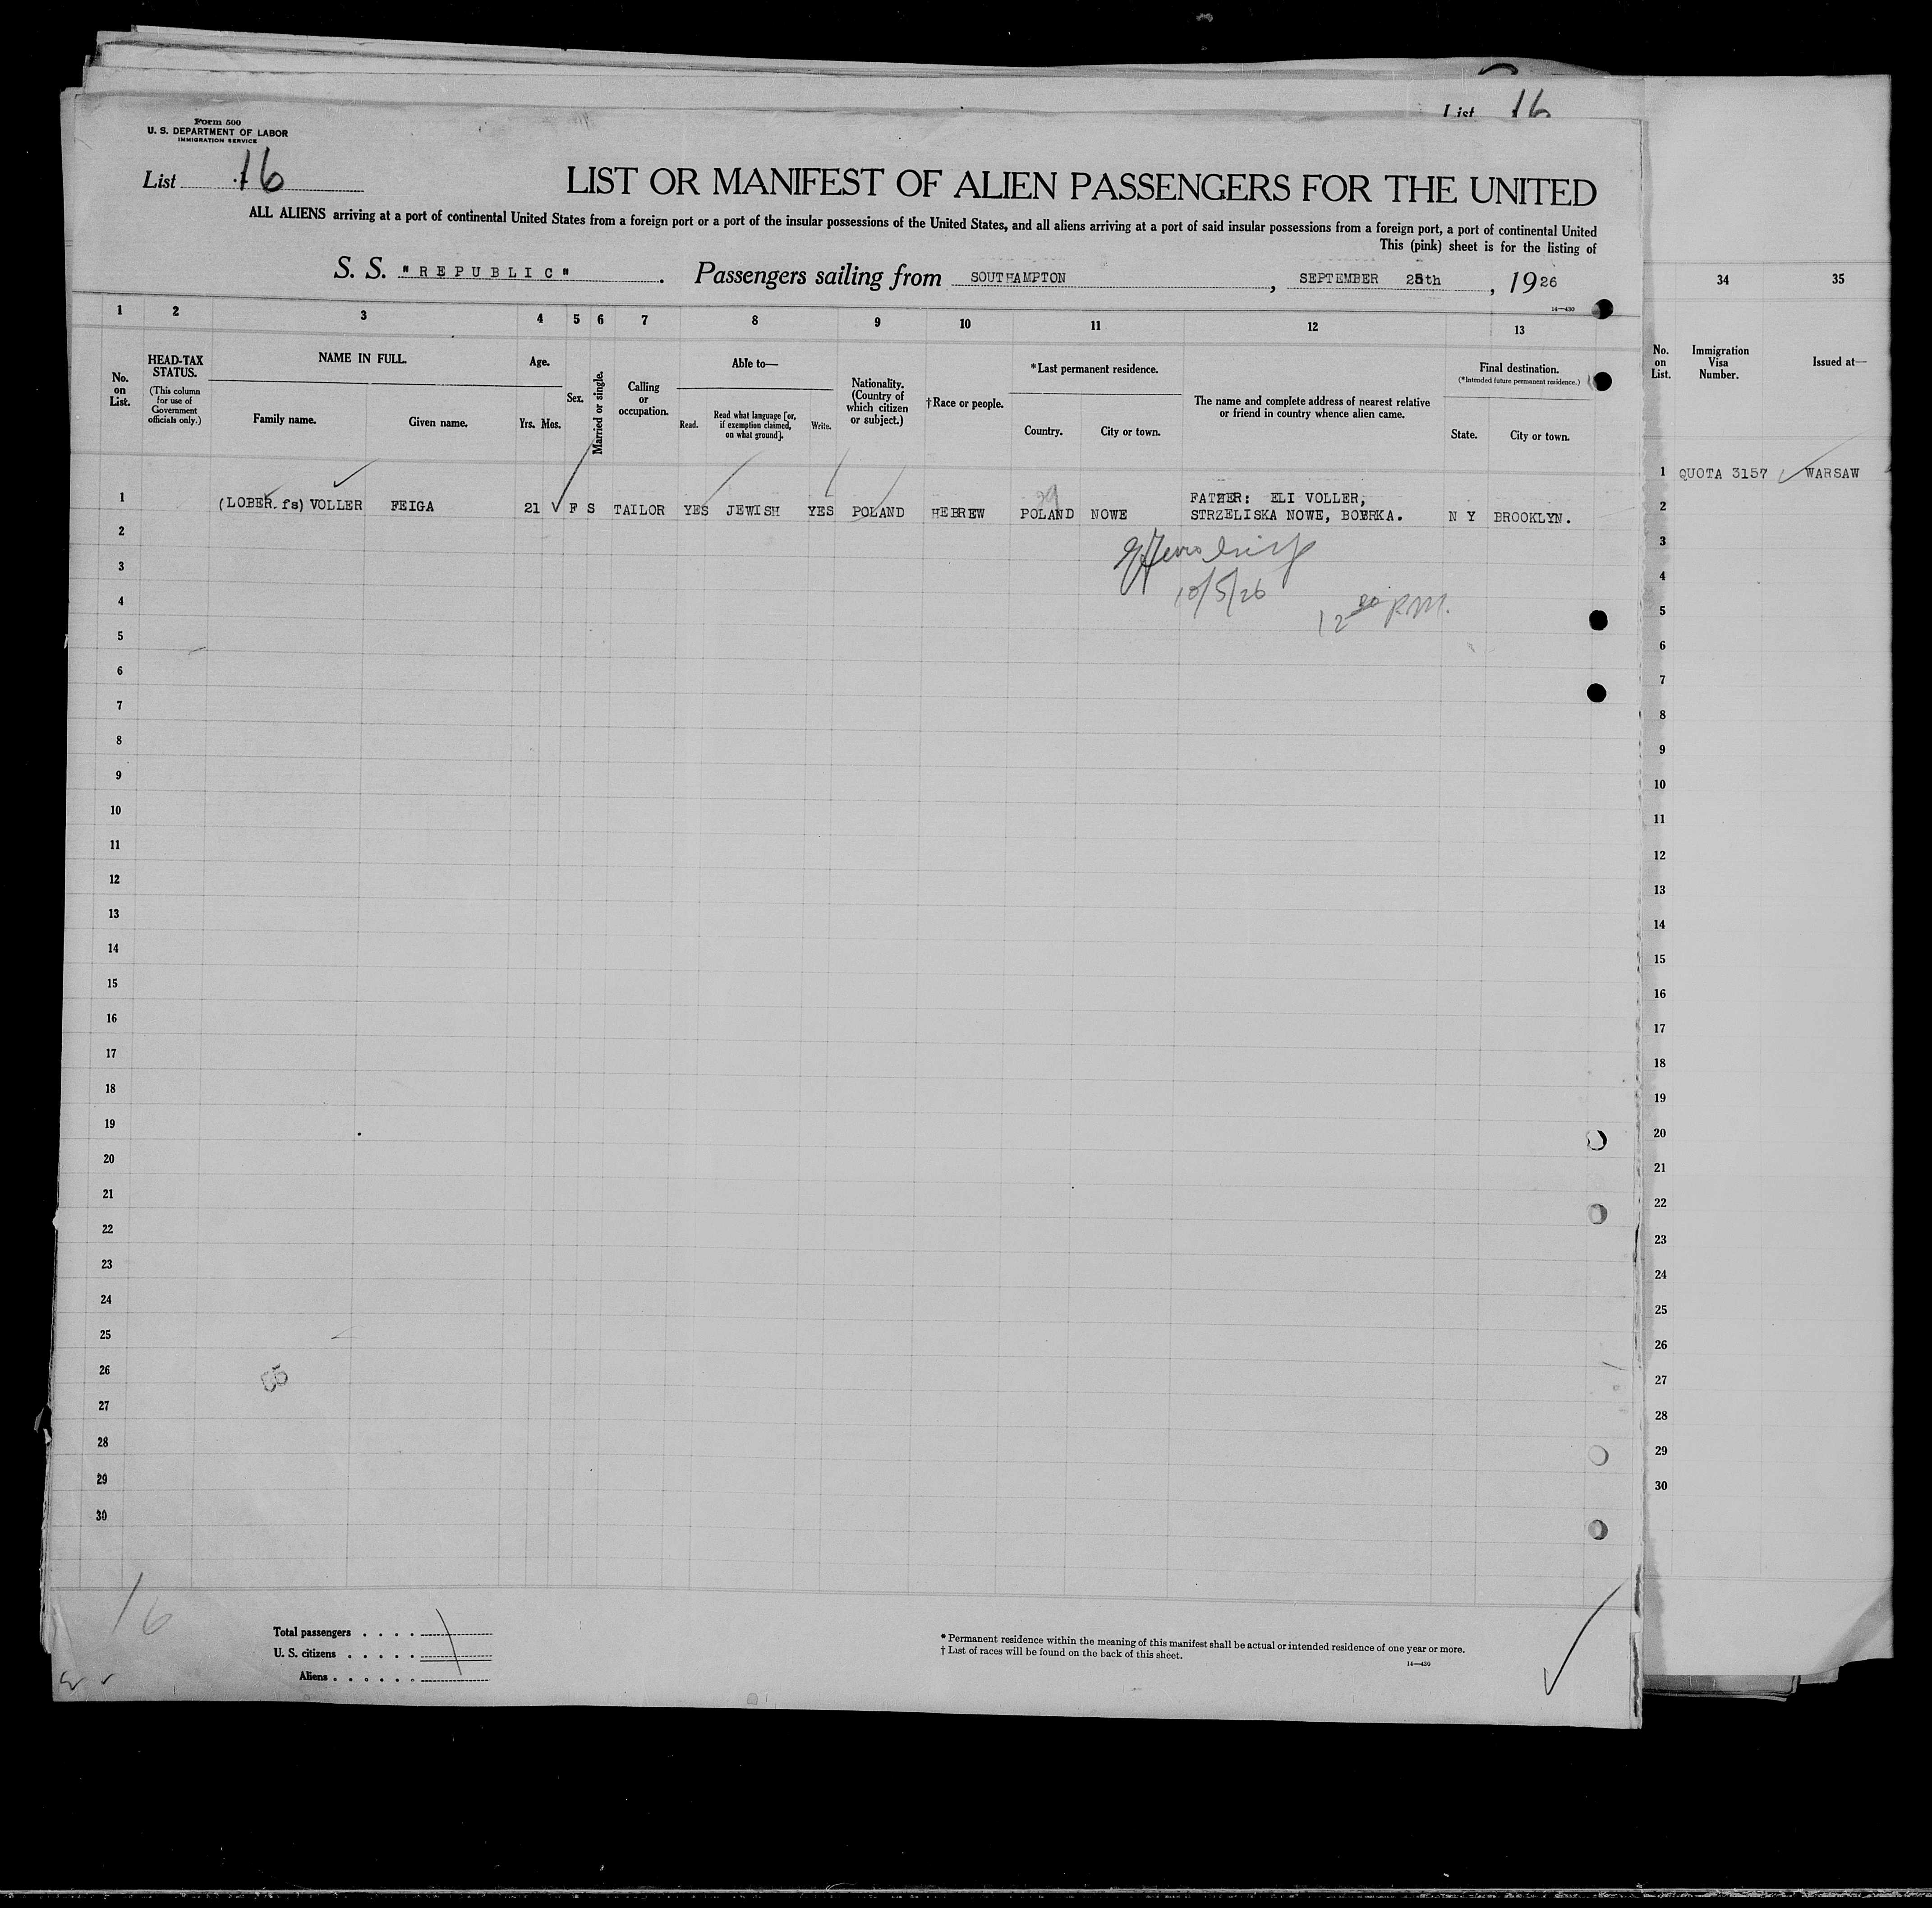 List 16
Form 500
U. S. DEPARTMENT OF LABOR
IMMIGRATION SERVICE
List 16
LIST OR MANIFEST OF ALIEN PASSENGERS FOR THE UNITED
ALL ALIENS arriving at a port of continental United States from a foreign port or a port of the insular possessions of the United States, and all aliens arriving at a port of said insular possessions from a foreign port, a port of continental United
This (pink) sheet is for the listing of
S. S. "REPUBLIC". Passengers sailing from SOUTHAMPTON, SEPTEMBER 25th, 1926
14—430
1 2 3 4 5 6 7 8 9 10 11 12 13
No. on List.
HEAD-TAX STATUS.
(This column for use of Government officials only.)
NAME IN FULL.
Family name. Given name.
Age.
Yrs. Mos.
Sex.
Married or single.
Calling or occupation.
Able to—
Read.
Read what language [or, if exemption claimed, on what ground].
Write.
Nationality. (Country of which citizen or subject.)
†Race or people.
*Last permanent residence.
Country. City or town.
The name and complete address of nearest relative or friend in country whence alien came.
Final destination.
(*Intended future permanent residence.)
State. City or town.
34 35
No. on List.
Immigration Visa Number.
Issued at—
1 QUOTA 3157 WARSAW
1 (LOBER fs) VOLLER FEIGA 21 F S TAILOR YES JEWISH YES POLAND HEBREW POLAND NOWE FATHER: ELI VOLLER,
STRZELISKA NOWE, BOBRKA. N Y BROOKLYN.
10/5/26
12 30 P.M.
2
3
4
5
6
7
8
9
10
11
12
13
14
15
16
17
18
19
20
21
22
23
24
25
26
27
28
29
30
2
3
4
5
6
7
8
9
10
11
12
13
14
15
16
17
18
19
20
21
22
23
24
25
26
27
28
29
30
16
Total passengers . . . .
U. S. citizens . . . . .
Aliens . . . . . .
* Permanent residence within the meaning of this manifest shall be actual or intended residence of one year or more.
† List of races will be found on the back of this sheet.
14—430